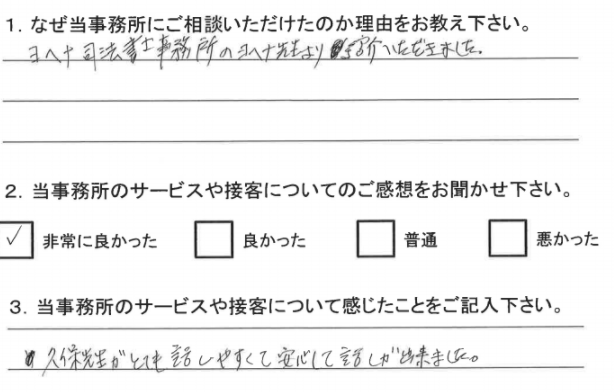 1. なぜ当事務所にご相談いただけたのか理由をお教え下さい。
ヨヘナ司法書士事務所のヨヘナ先生より紹介いただきました。
2. 当事務所のサービスや接客についてのご感想をお聞かせ下さい。
✓ 非常に良かった 良かった 普通 悪かった
3. 当事務所のサービスや接客について感じたことをご記入下さい。
久保先生がとても話しやすくて安心して話しが出来ました。